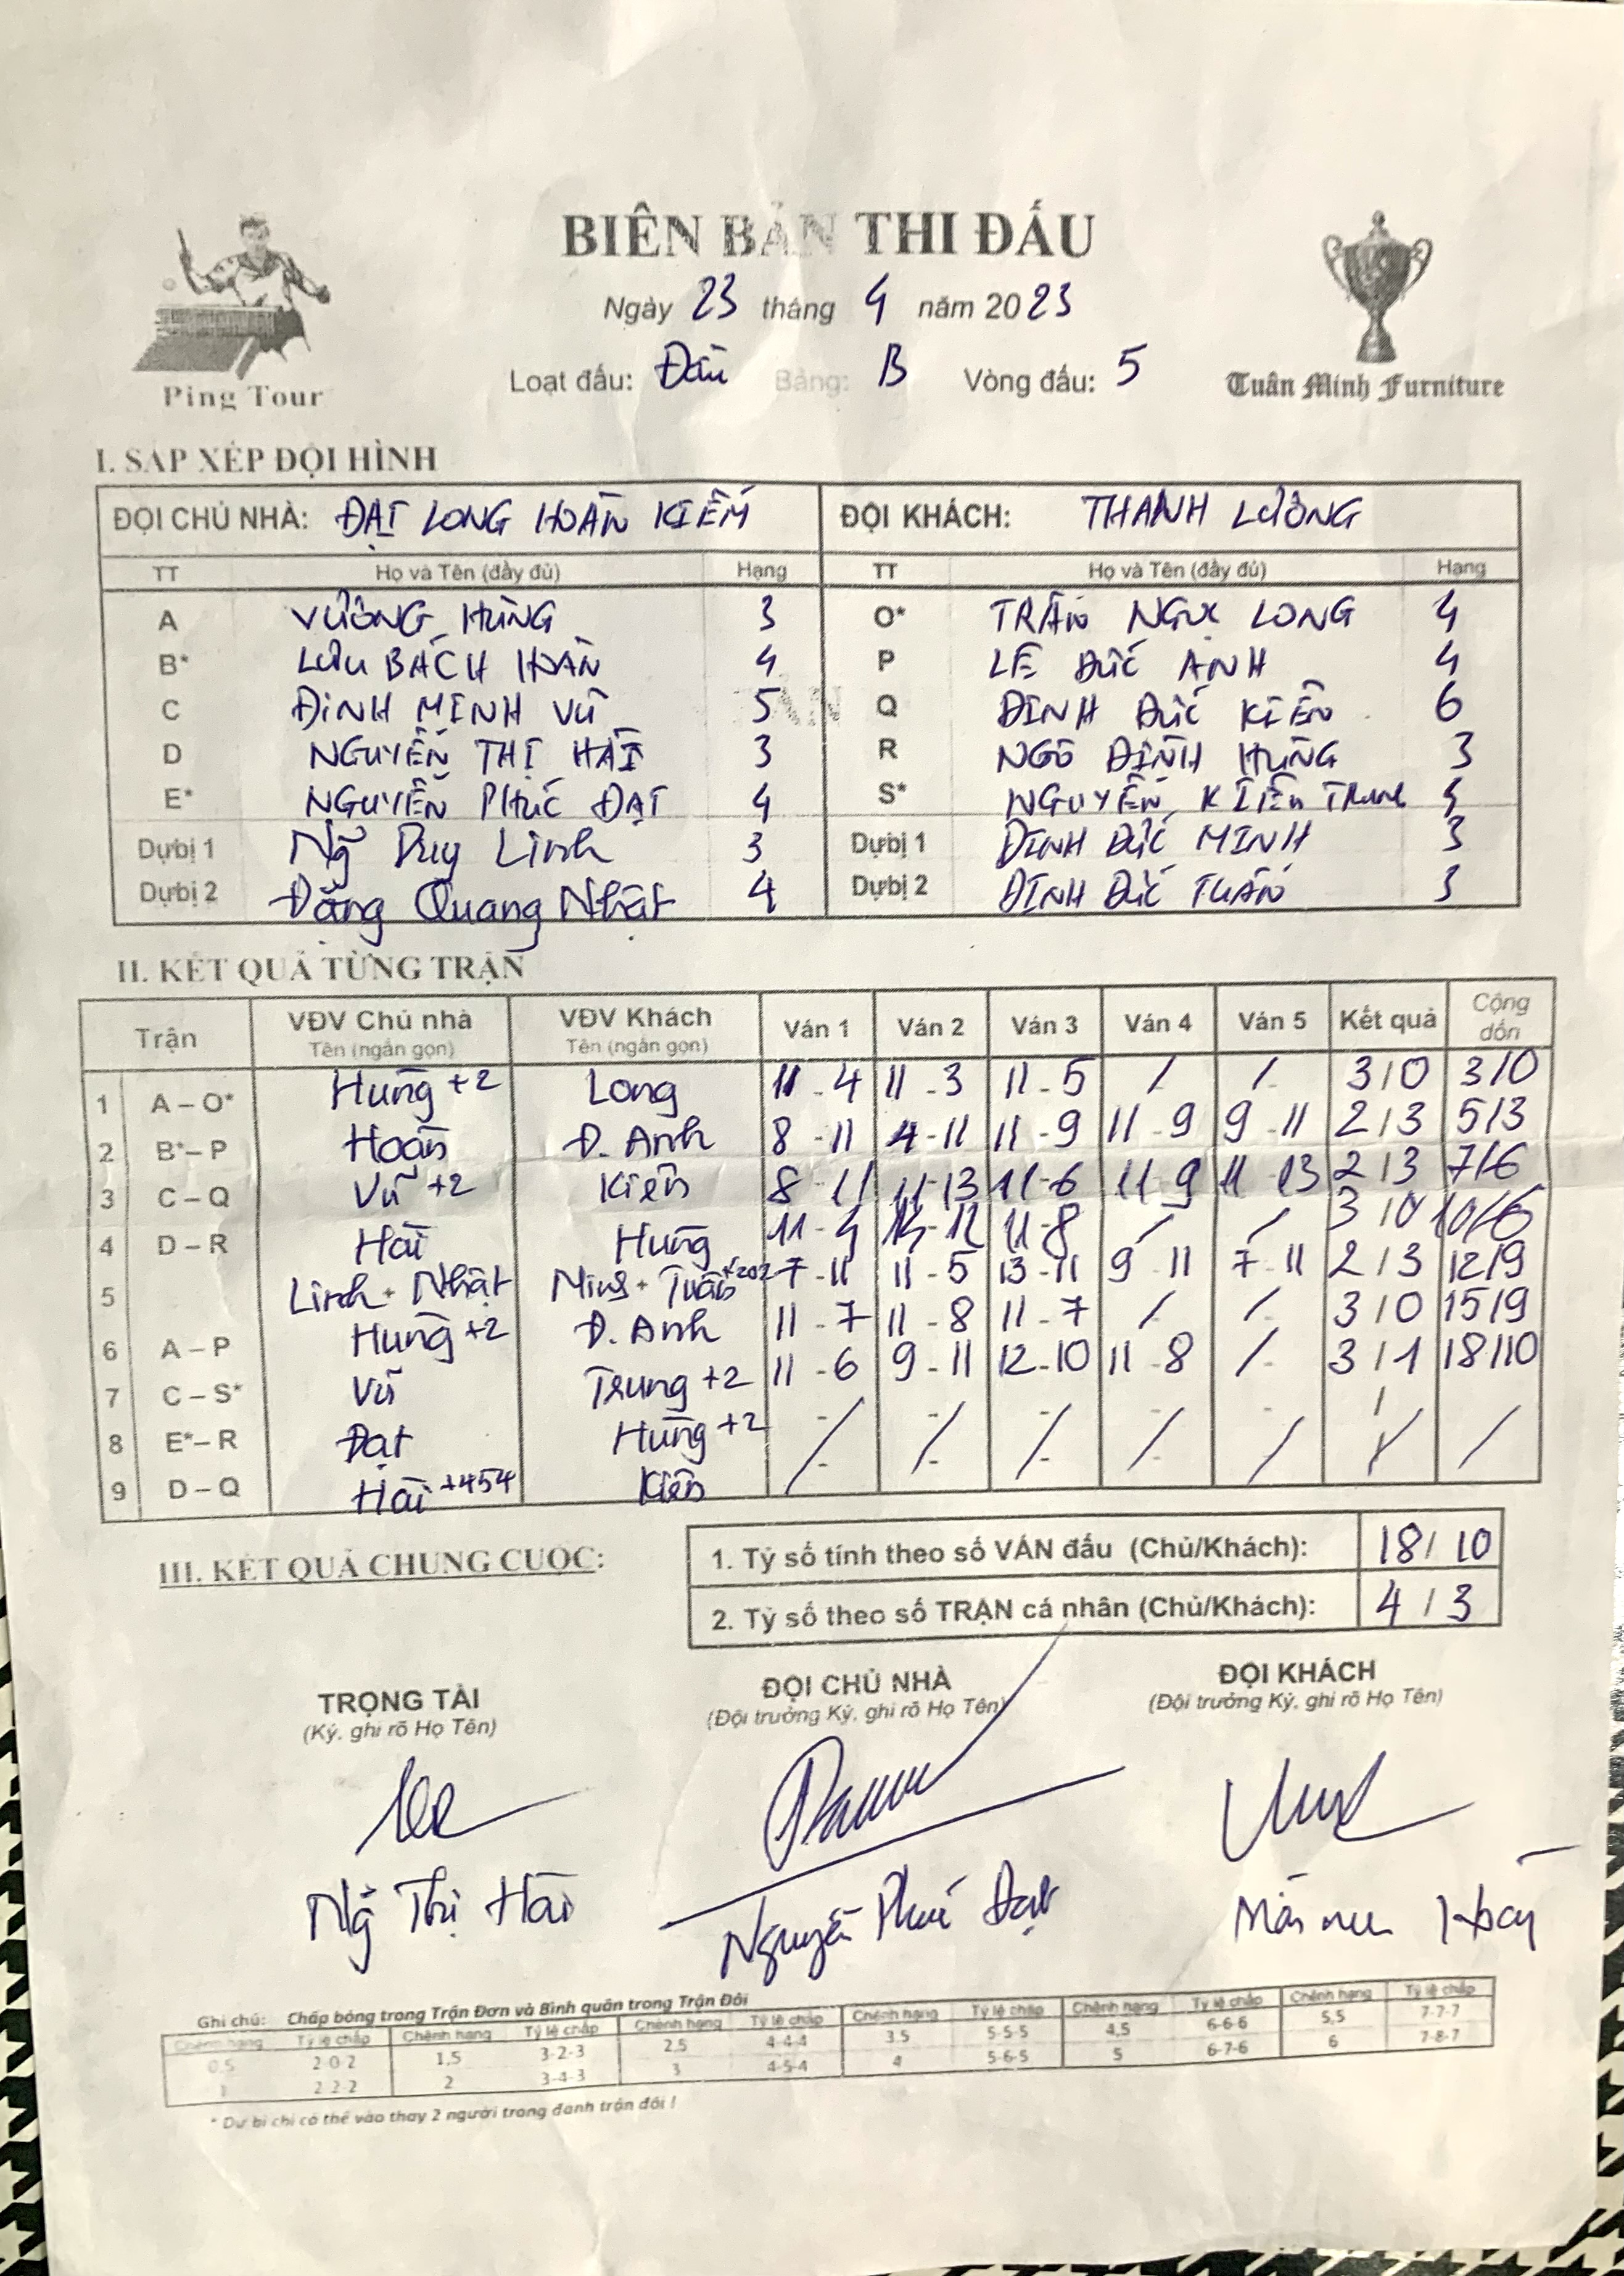 BIÊN BẢN THI ĐẤU
Ngày 23 tháng 4 năm 2023
Loạt đấu: Đấu Bảng: B Vòng đấu: 5
Ping Tour
Tuấn Minh Furniture
I. SẮP XẾP ĐỘI HÌNH
ĐỘI CHỦ NHÀ: ĐẠI LONG HOÀN KIẾM ĐỘI KHÁCH: THANH LƯƠNG
TT Họ và Tên (đầy đủ) Hạng TT Họ và Tên (đầy đủ) Hạng
A VƯƠNG HÙNG 3 O* TRẦN NGỌC LONG 4
B* LƯU BÁCH HOÀN 4 P LÊ ĐỨC ANH 4
C ĐINH MINH VŨ 5 Q ĐINH ĐỨC KIÊN 6
D NGUYỄN THỊ HẢI 3 R NGÔ ĐÌNH HÙNG 3
E* NGUYỄN PHÚC ĐẠT 4 S* NGUYỄN KIÊN TRUNG
Dự bị 1 Ng̃ Duy Linh 3 Dự bị 1 ĐINH ĐỨC MINH 3
Dự bị 2 Đặng Quang Nhật 4 Dự bị 2 ĐINH ĐỨC TUẤN 3
II. KẾT QUẢ TỪNG TRẬN
Trận VĐV Chủ nhà VĐV Khách Ván 1 Ván 2 Ván 3 Ván 4 Ván 5 Kết quả Cộng dồn
Tên (ngắn gọn) Tên (ngắn gọn)
1 A – O* Hùng +2 Long 11 - 4 11 - 3 11 - 5 / / 3 / 0 3/0
2 B* – P Hoàn Đ. Anh 8 - 11 4 - 11 11 - 9 11 - 9 9 - 11 2 / 3 5/3
3 C – Q Vũ +2 Kiên 8 - 11 11 - 13 11 - 6 11 - 9 11 - 13 2 / 3 7/6
4 D – R Hải Hùng 11 - 4 14 - 12 11 - 8 / / 3 / 0 10/6
5 Linh + Nhật Minh + Tuấn +202 7 - 11 11 - 5 13 - 11 9 - 11 7 - 11 2 / 3 12/9
6 A – P Hùng +2 Đ. Anh 11 - 7 11 - 8 11 - 7 / / 3 / 0 15/9
7 C – S* Vũ Trung +2 11 - 6 9 - 11 12 - 10 11 - 8 / 3 / 1 18/10
8 E* – R Đạt Hùng +2 - - - - - /
9 D – Q Hải +454 Kiên / / / / / / /
III. KẾT QUẢ CHUNG CUỘC:
1. Tỷ số tính theo số VÁN đấu (Chủ/Khách): 18 / 10
2. Tỷ số theo số TRẬN cá nhân (Chủ/Khách): 4 / 3
TRỌNG TÀI ĐỘI CHỦ NHÀ ĐỘI KHÁCH
(Ký, ghi rõ Họ Tên) (Đội trưởng Ký, ghi rõ Họ Tên) (Đội trưởng Ký, ghi rõ Họ Tên)
Ng̃ Thị Hải Nguyễn Phúc Đạt
Ghi chú: Chấp bóng trong Trận Đơn và Bình quân trong Trận Đôi
Chênh hạng Tỷ lệ chấp Chênh hạng Tỷ lệ chấp Chênh hạng Tỷ lệ chấp Chênh hạng Tỷ lệ chấp Chênh hạng Tỷ lệ chấp Chênh hạng Tỷ lệ chấp
0,5 2-0-2 1,5 3-2-3 2,5 4-4-4 3,5 5-5-5 4,5 6-6-6 5,5 7-7-7
1 2-2-2 2 3-4-3 3 4-5-4 4 5-6-5 5 6-7-6 6 7-8-7
* Dự bị chỉ có thể vào thay 2 người trong danh trận đôi !